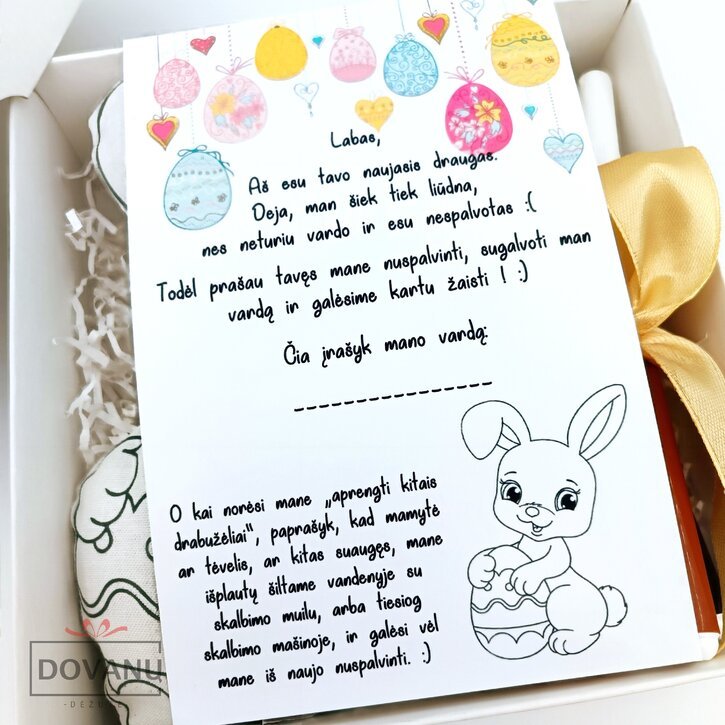 Labas,
Aš esu tavo naujasis draugas.
Deja, man šiek tiek liūdna,
nes neturiu vardo ir esu nespalvotas :(
Todėl prašau tavęs mane nuspalvinti, sugalvoti man
vardą ir galėsime kartu žaisti ! :)
Čia įrašyk mano vardą:
________________
O kai norėsi mane „aprengti kitais
drabužėliai“, paprašyk, kad mamytė
ar tėvelis, ar kitas suaugęs, mane
išplautų šiltame vandenyje su
skalbimo muilu, arba tiesiog
skalbimo mašinoje, ir galėsi vėl
mane iš naujo nuspalvinti. :)
DOVANŲ
-DĖŽUTĖ-